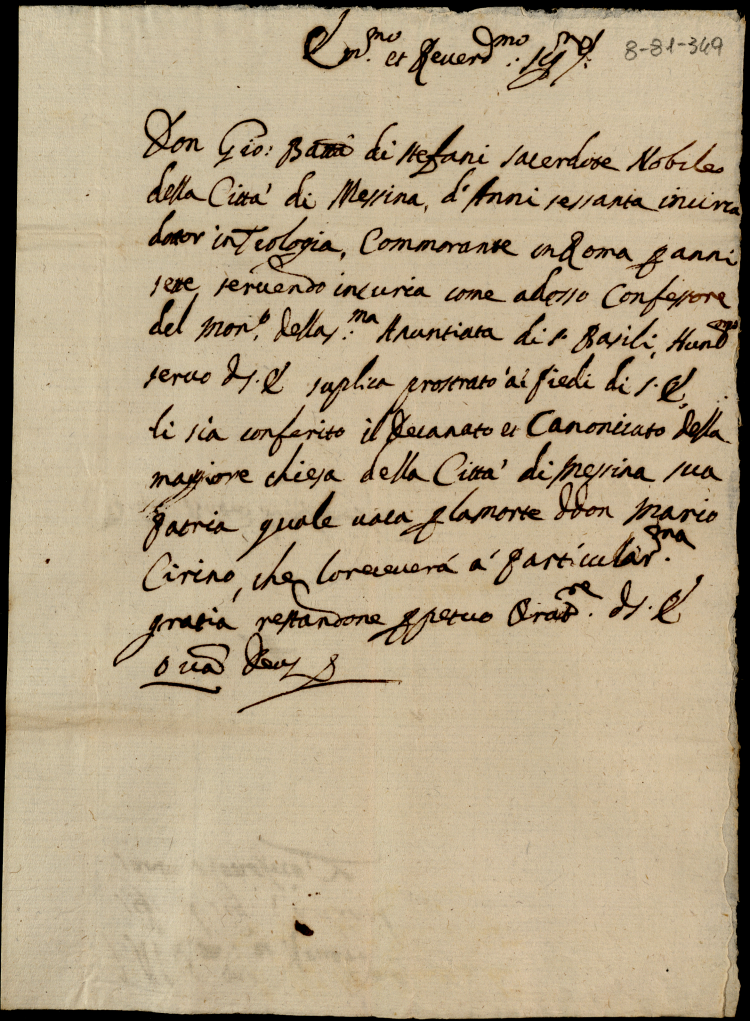 Em.mo et Reverd.mo Sig.re
8-81-349
Don Gio: Batta di stefani sacerdote Nobile
della Città di Messina, d'Anni sessanta incirca
dottor in Teologia, Commorante in Roma p anni
sette, servendo in curia come adesso Confessore
del mon.o della s.ma Anuntiata di s. Basili, Hum.mo
servo di S. E suplica prostrato ai piedi di S. E,
li sia conferito il Decanato et Canonicato della
maggiore chiesa della Città di Messina sua
patria quale vaca p la morte d Don Mario
Cirino, che lo receverà a' particular.ma
gratia restandone ppetuo Orat.re di S. E
quã Deus